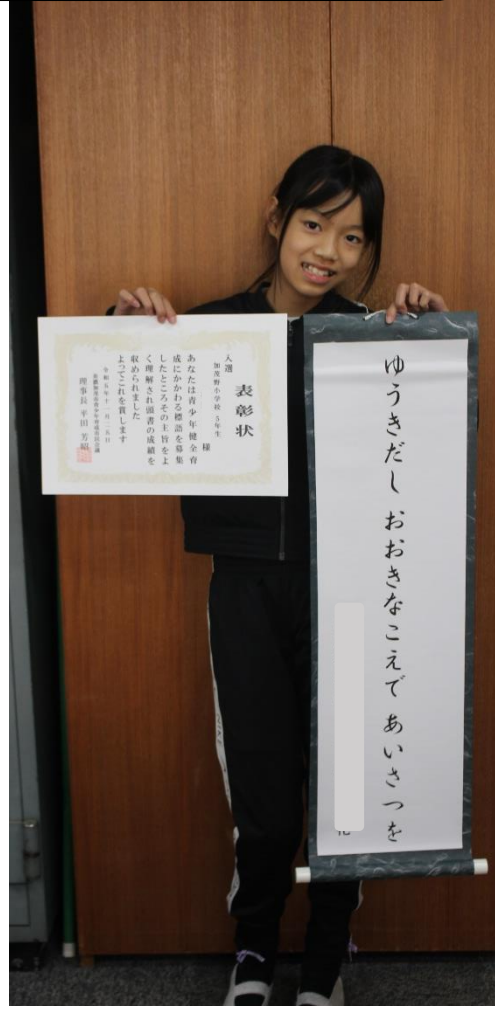 表彰状
入選
加茂野小学校 5年生
様
あなたは青少年健全育
成にかかわる標語を募集
したところその主旨をよ
く理解され頭書の成績を
収められました
よってこれを賞します
令和五年十一月二五日
理事長 平田 芳昭
ゆうきだし おおきなこえで あいさつを